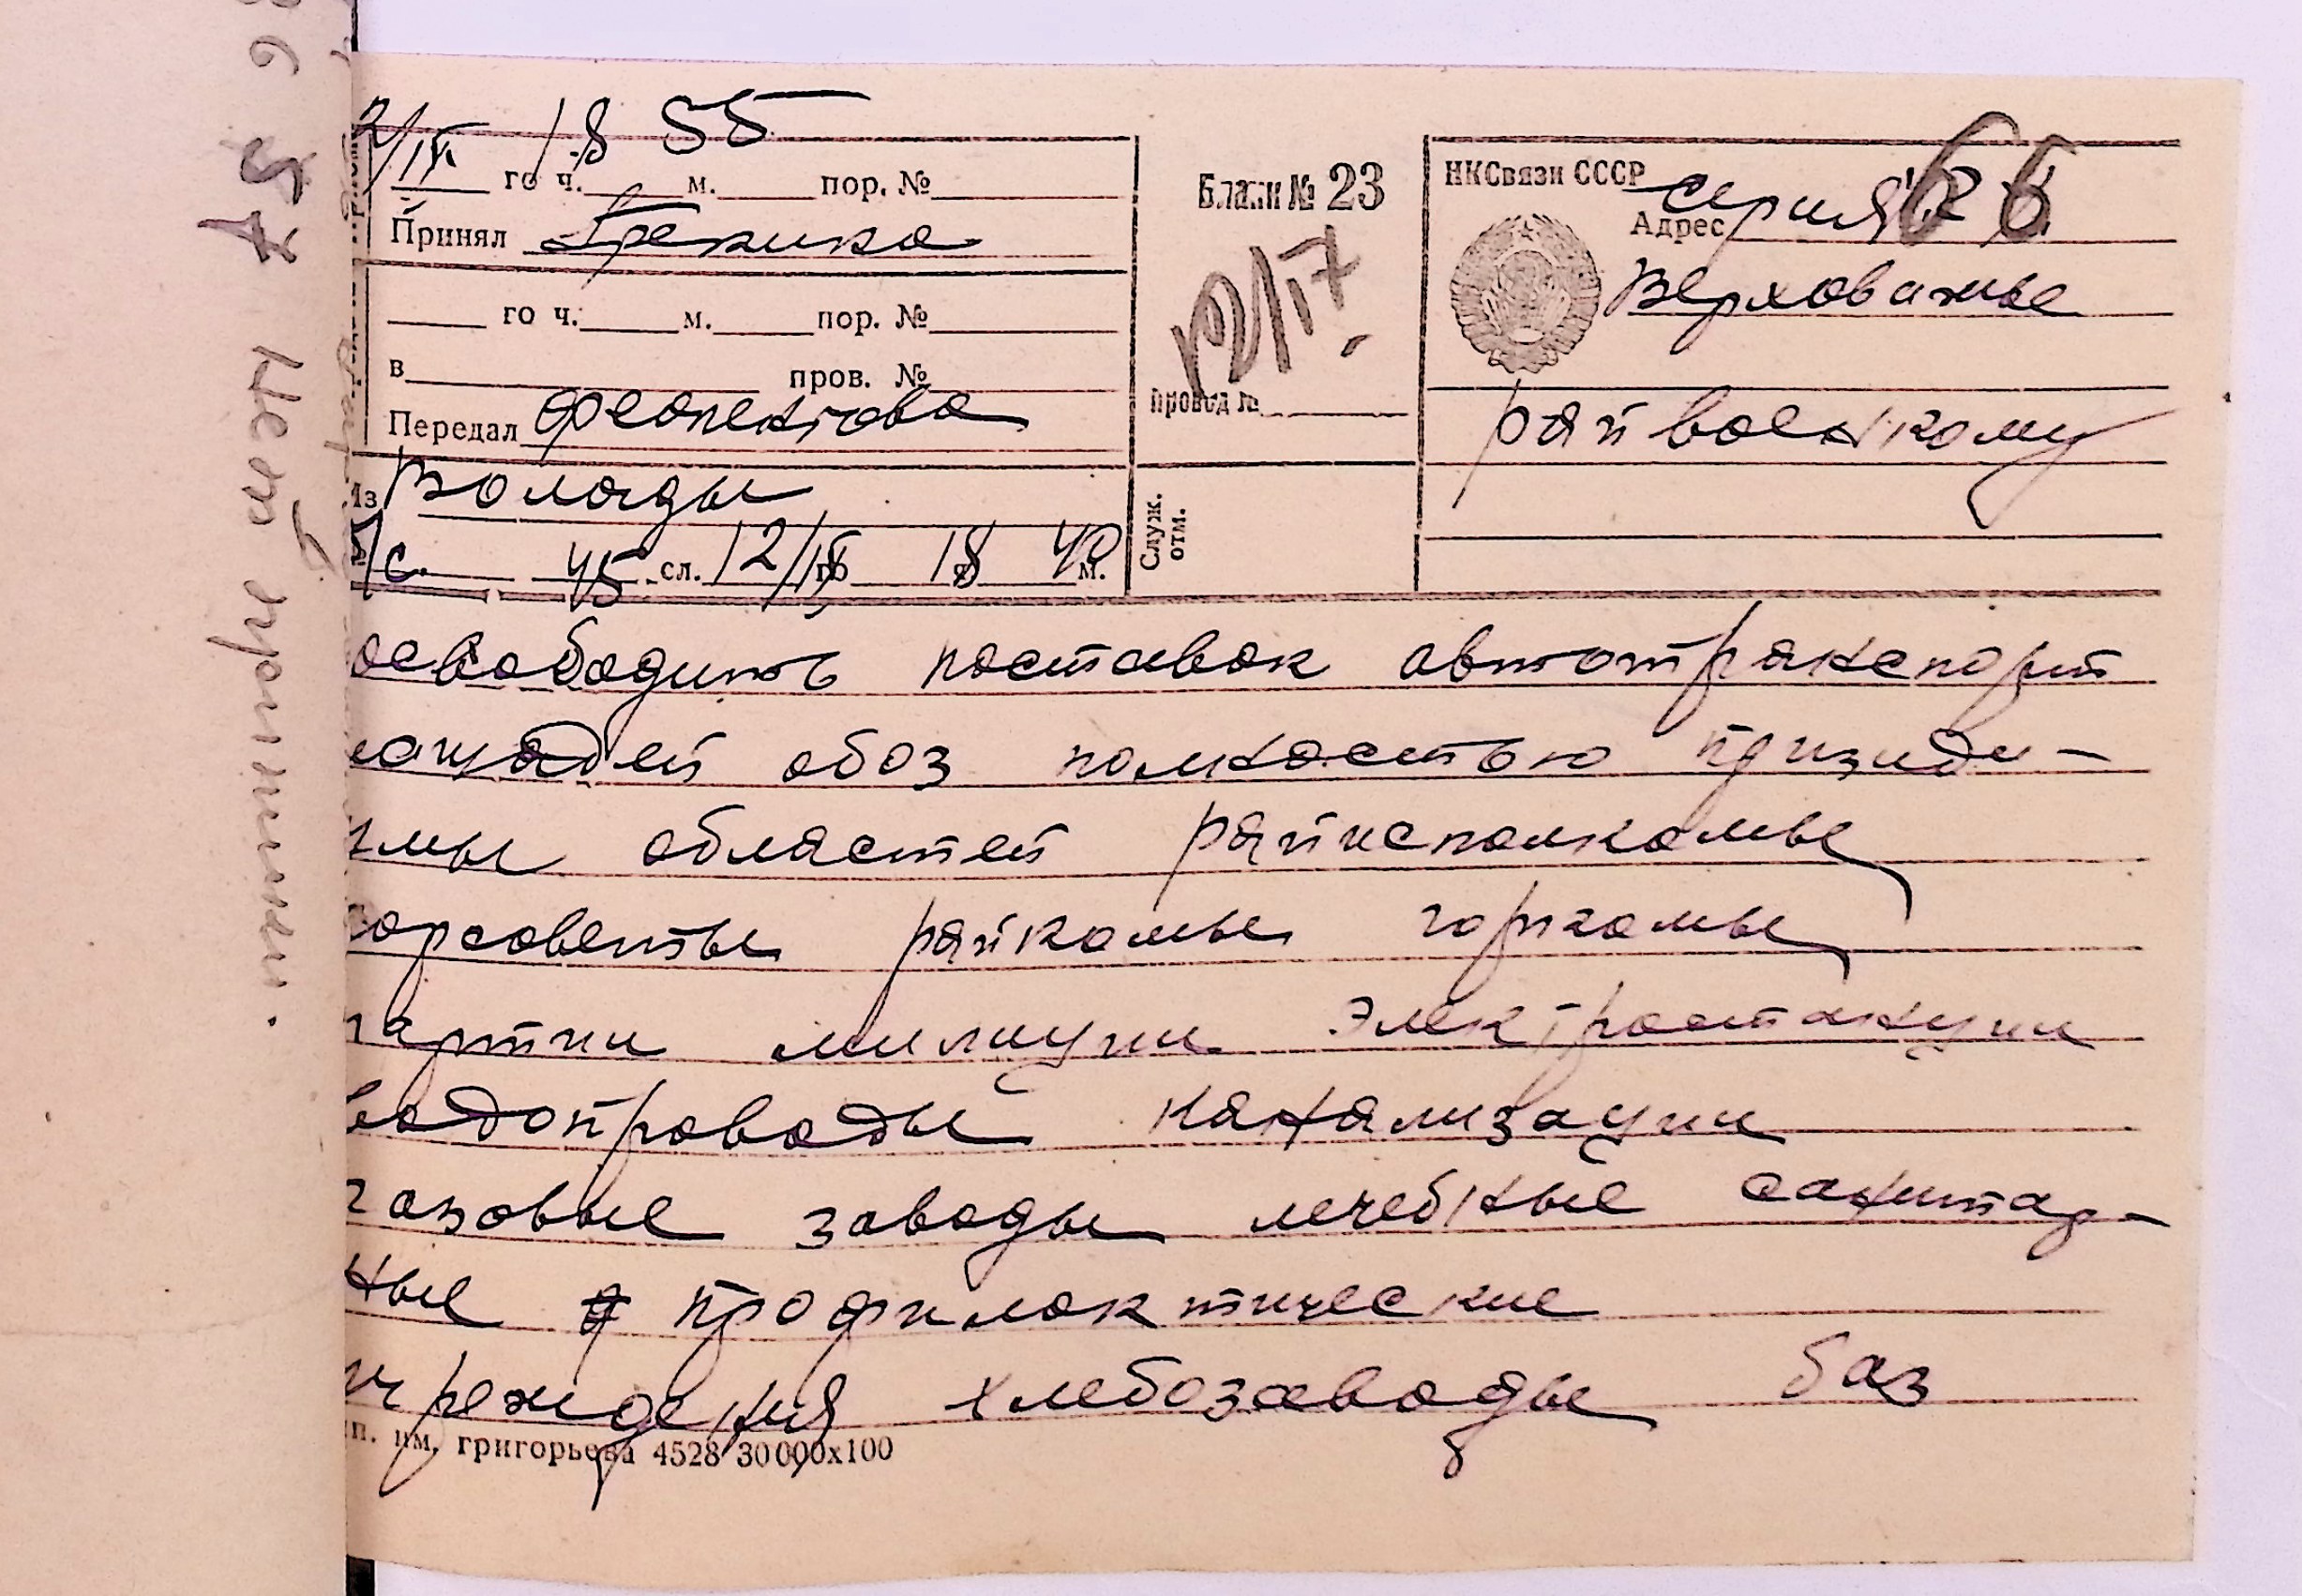 12/IX 18 55
го ч. м. пор. №
Принял
го ч. м. пор. №
в пров. №
Передал Феопентова
Из Вологды
с. 45 сл. 12/IX го 18 40 м.
Бланк № 23
12/17.
провод №
Служ. отм.
НКСвязи СССР
Адрес серия
Верховажье
райвоенкому
освободить поставок автотранспорт
лошадей обоз полностью призиди-
умы областей райисполкомы
горсоветы райкомы горкомы
партии милиции электростанции
водопроводы канализации
газовые заводы лечебные санитар-
ные профилактические
учреждения хлебозаводы баз
п. им. григорьева 4528 30000х100